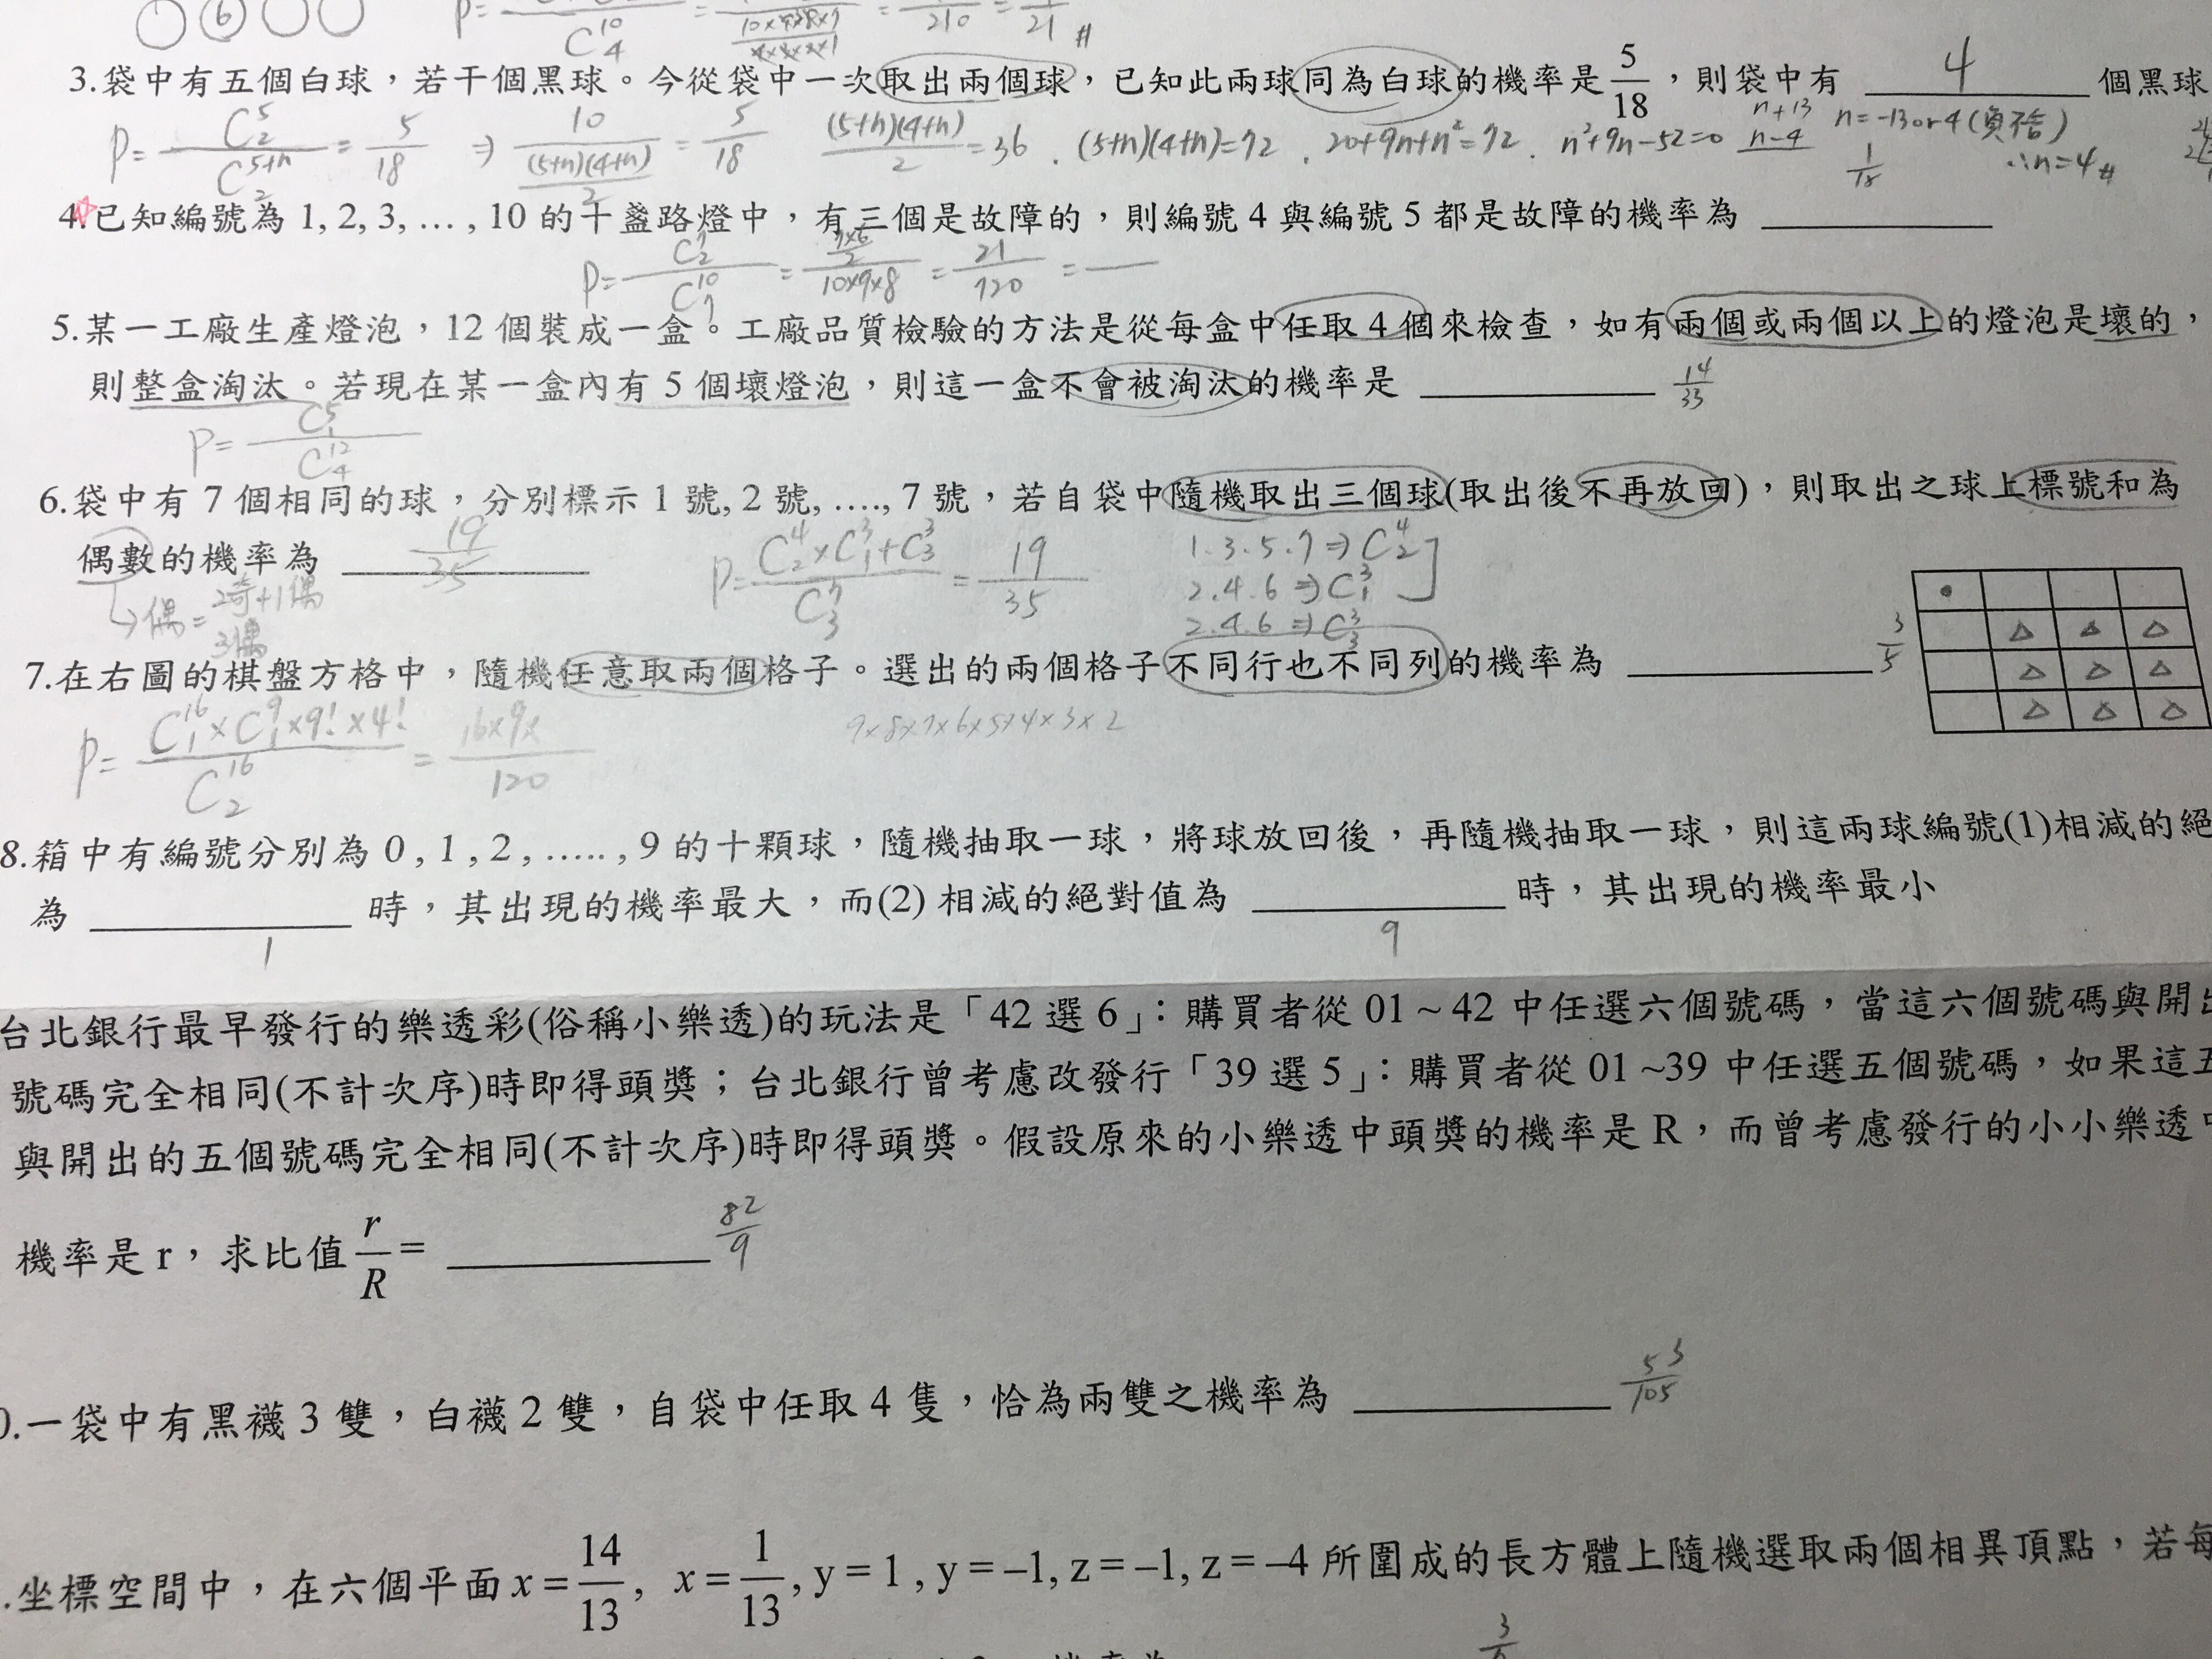 ⑥ P= / C^10_4 = / 10×9×8×7 / 4×3×2×1 = / 210 = / 21 #
3.袋中有五個白球，若干個黑球。今從袋中一次取出兩個球，已知此兩球同為白球的機率是 5/18，則袋中有 4 個黑球
P= C^5_2 / C^{5+n}_2 = 5/18 ⇒ 10 / (5+n)(4+n)/2 = 5/18 (5+n)(4+n)/2 =36 . (5+n)(4+n)=72 . 20+9n+n²=72 . n²+9n-52=0 n+13 n-4 n=-13 or 4 (負不合) 1/18 ∴n=4 #
4.已知編號為 1, 2, 3, … , 10 的十盞路燈中，有三個是故障的，則編號 4 與編號 5 都是故障的機率為
P= C^7_2 / C^10_7 = 7×6/2 / 10×9×8 = 21/720 =
5.某一工廠生產燈泡，12 個裝成一盒。工廠品質檢驗的方法是從每盒中任取 4 個來檢查，如有兩個或兩個以上的燈泡是壞的，
則整盒淘汰。若現在某一盒內有 5 個壞燈泡，則這一盒不會被淘汰的機率是 14/33
P= C^5_1 / C^12_4
6.袋中有 7 個相同的球，分別標示 1 號, 2 號, …., 7 號，若自袋中隨機取出三個球(取出後不再放回)，則取出之球上標號和為
偶數的機率為 19/35
↳偶= 2奇+1偶 3偶
P= C^4_2×C^3_1+C^3_3 / C^7_3 = 19/35
1.3.5.7⇒C^4_2
2.4.6⇒C^3_1
2.4.6⇒C^3_3
7.在右圖的棋盤方格中，隨機任意取兩個格子。選出的兩個格子不同行也不同列的機率為 3/5
P= C^16_1×C^9_1×9!×4! / C^16_2 = 16×9× / 120
9×8×7×6×5×4×3×2
8.箱中有編號分別為 0 , 1 , 2 , ….. , 9 的十顆球，隨機抽取一球，將球放回後，再隨機抽取一球，則這兩球編號(1)相減的絕
為 1 時，其出現的機率最大，而(2) 相減的絕對值為 9 時，其出現的機率最小
台北銀行最早發行的樂透彩(俗稱小樂透)的玩法是「42 選 6」：購買者從 01 ~ 42 中任選六個號碼，當這六個號碼與開出
號碼完全相同(不計次序)時即得頭獎；台北銀行曾考慮改發行「39 選 5」：購買者從 01 ~39 中任選五個號碼，如果這五
與開出的五個號碼完全相同(不計次序)時即得頭獎。假設原來的小樂透中頭獎的機率是 R，而曾考慮發行的小小樂透中
機率是 r，求比值 r/R = 82/9
0.一袋中有黑襪 3 雙，白襪 2 雙，自袋中任取 4 隻，恰為兩雙之機率為 53/105
.坐標空間中，在六個平面 x = 14/13, x = 1/13, y = 1 , y = –1, z = –1, z = –4 所圍成的長方體上隨機選取兩個相異頂點，若每